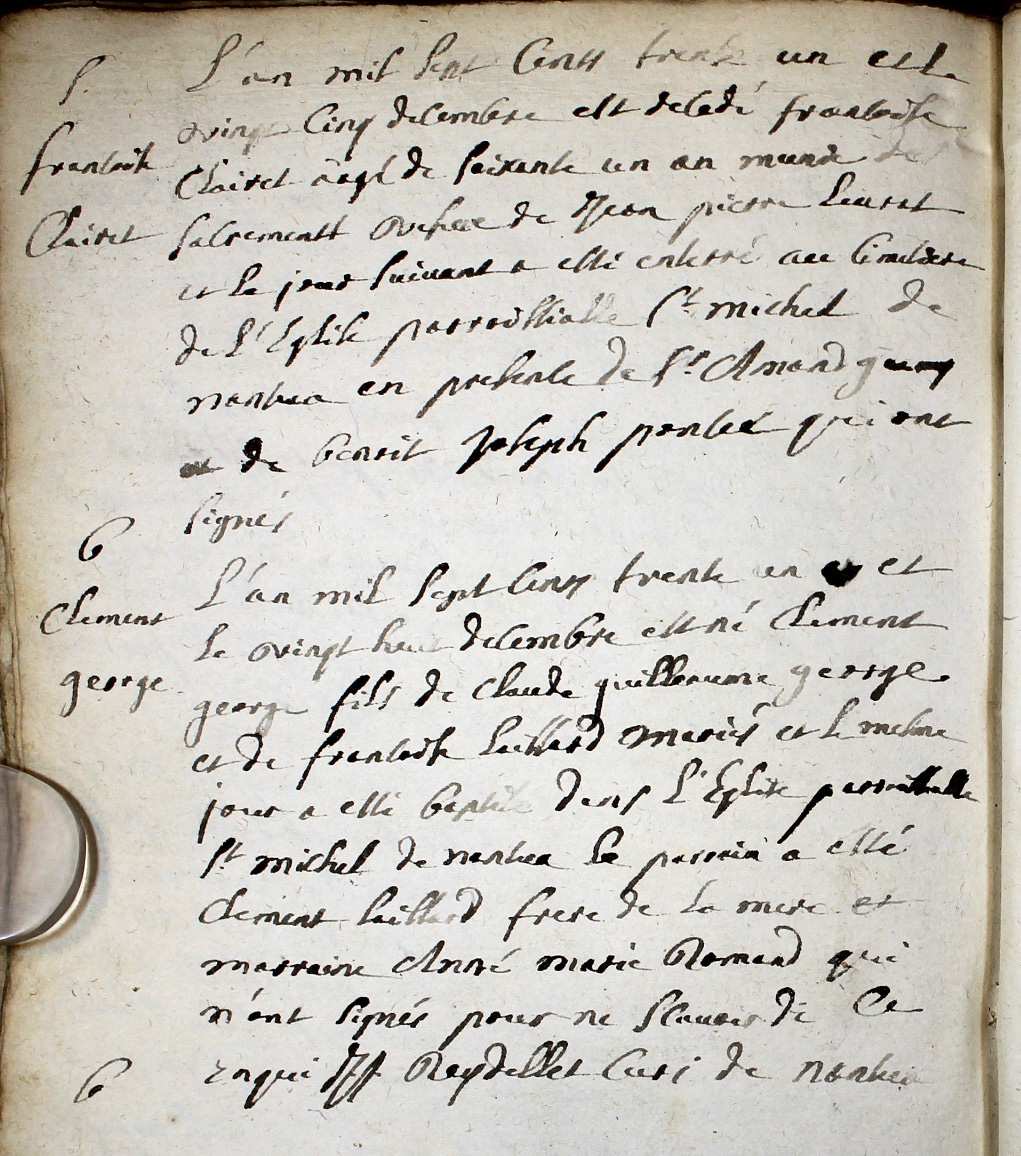 S.
françoise
Clairet
L'an mil sept Cents trente un et le
vingt Cinq decembre est decedé françoise
Clairet aagé de soixante un an munie des
sacrements de Jean pierre
et le jour suivant a esté enterré au Cimitiere
de L'Eglise parroissialle St michel de
nantua en presence de Sr Amand
de benoit Joseph ponset qui ont
signés
6
Clement
george
L'an mil sept Cents trente un et
le vingt huit decembre est né Clement
george fils de Claude guilleaume george
et de françoise paillard mariés et le mesme
jour a esté baptisé dans L'Eglise parroissialle
St michel de nantua Le parrain a esté
Clement paillard frere de La mere et
marraine Anné marie Romand qui
n'ont signés pour ne sçavoir de Ce
enqui Reydellet Curé de nantua
6